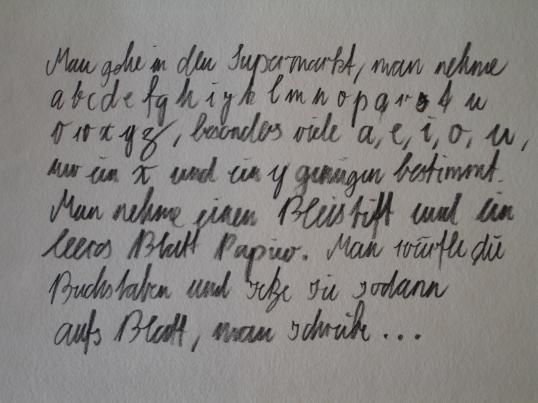 Man gehe in den Supermarkt, man nehme
a b c d e f g h i y k l m n o p q r s t u
v w x y z, besonders viele a, e, i, o, u,
nur ein x und ein y genügen bestimmt.
Man nehme einen Bleistift und ein
leeres Blatt Papier. Man würfle die
Buchstaben und setze sie sodann
aufs Blatt, man schreibe ...